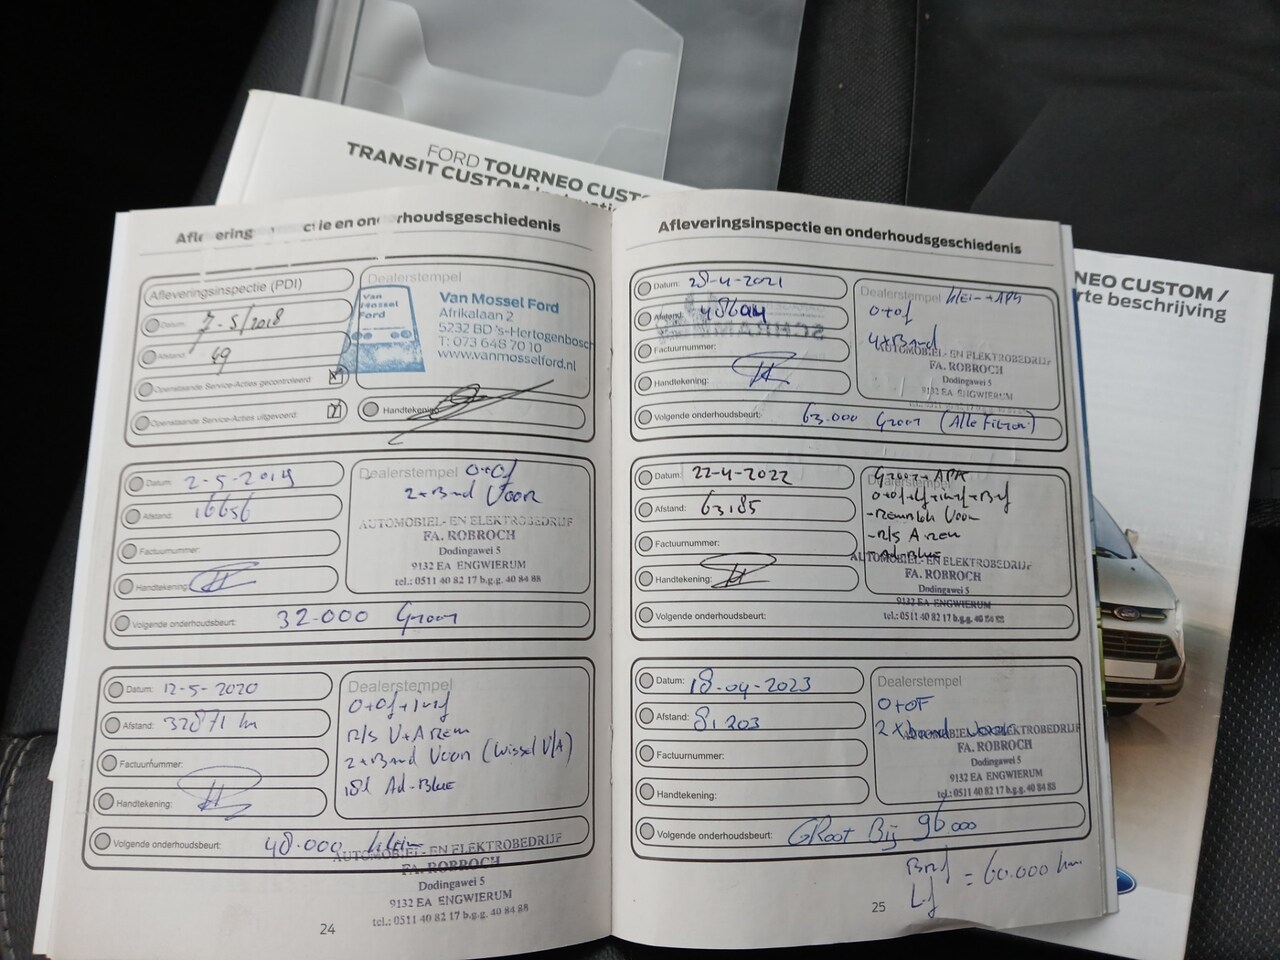 FORD TOURNEO CUST
TRANSIT CUSTOM
NEO CUSTOM /
rte beschrijving
Afleveringsinspectie en onderhoudsgeschiedenis
Afleveringsinspectie (PDI)
Datum: 7-5/2018
Afstand: 49
Openstaande Service-Acties gecontroleerd:
Openstaande Service-Acties uitgevoerd:
Dealerstempel
Van
Mossel
Ford
Van Mossel Ford
Afrikalaan 2
5232 BD 's-Hertogenbosch
T: 073 648 70 10
www.vanmosselford.nl
Handtekening:
Datum: 2-5-2019
Afstand: 16656
Factuurnummer:
Handtekening:
Dealerstempel O+Of
2x Band Voor
AUTOMOBIEL- EN ELEKTROBEDRIJF
FA. ROBROCH
Dodingawei 5
9132 EA ENGWIERUM
tel.: 0511 40 82 17 b.g.g. 40 84 88
Volgende onderhoudsbeurt: 32.000 Groot
Datum: 12-5-2020
Afstand: 32871 km
Factuurnummer:
Handtekening:
Dealerstempel
O+Of+Intf
R/S V+A Rem
2x Band Voor (Wissel V/A)
18l Ad-Blue
Volgende onderhoudsbeurt: 48.000 klein
AUTOMOBIEL- EN ELEKTROBEDRIJF
FA. ROBROCH
Dodingawei 5
9132 EA ENGWIERUM
tel.: 0511 40 82 17 b.g.g. 40 84 88
24
Afleveringsinspectie en onderhoudsgeschiedenis
Datum: 28-4-2021
Afstand:
Factuurnummer:
Handtekening:
Dealerstempel klein+APK
O+Of
4x Band
AUTOMOBIEL- EN ELEKTROBEDRIJF
FA. ROBROCH
Dodingawei 5
9132 EA ENGWIERUM
Volgende onderhoudsbeurt: 63.000 Groot (Alle Filters)
Datum: 22-4-2022
Afstand: 63185
Factuurnummer:
Handtekening:
Dealerstempel
Groot+APK
O+Of+Lf+Intf+Brf
-Remblok Voor
-R/S A Rem
-Ad-Blue
AUTOMOBIEL- EN ELEKTROBEDRIJF
FA. ROBROCH
Dodingawei 5
9132 EA ENGWIERUM
tel.: 0511 40 82 17 b.g.g. 40 84 88
Volgende onderhoudsbeurt:
Datum: 18-04-2023
Afstand: 81.203
Factuurnummer:
Handtekening:
Dealerstempel
O+OF
2x band voor
AUTOMOBIEL- EN ELEKTROBEDRIJF
FA. ROBROCH
Dodingawei 5
9132 EA ENGWIERUM
tel.: 0511 40 82 17 b.g.g. 40 84 88
Volgende onderhoudsbeurt: GRoot Bij 96000
Brf
Lf = 60.000 km
25